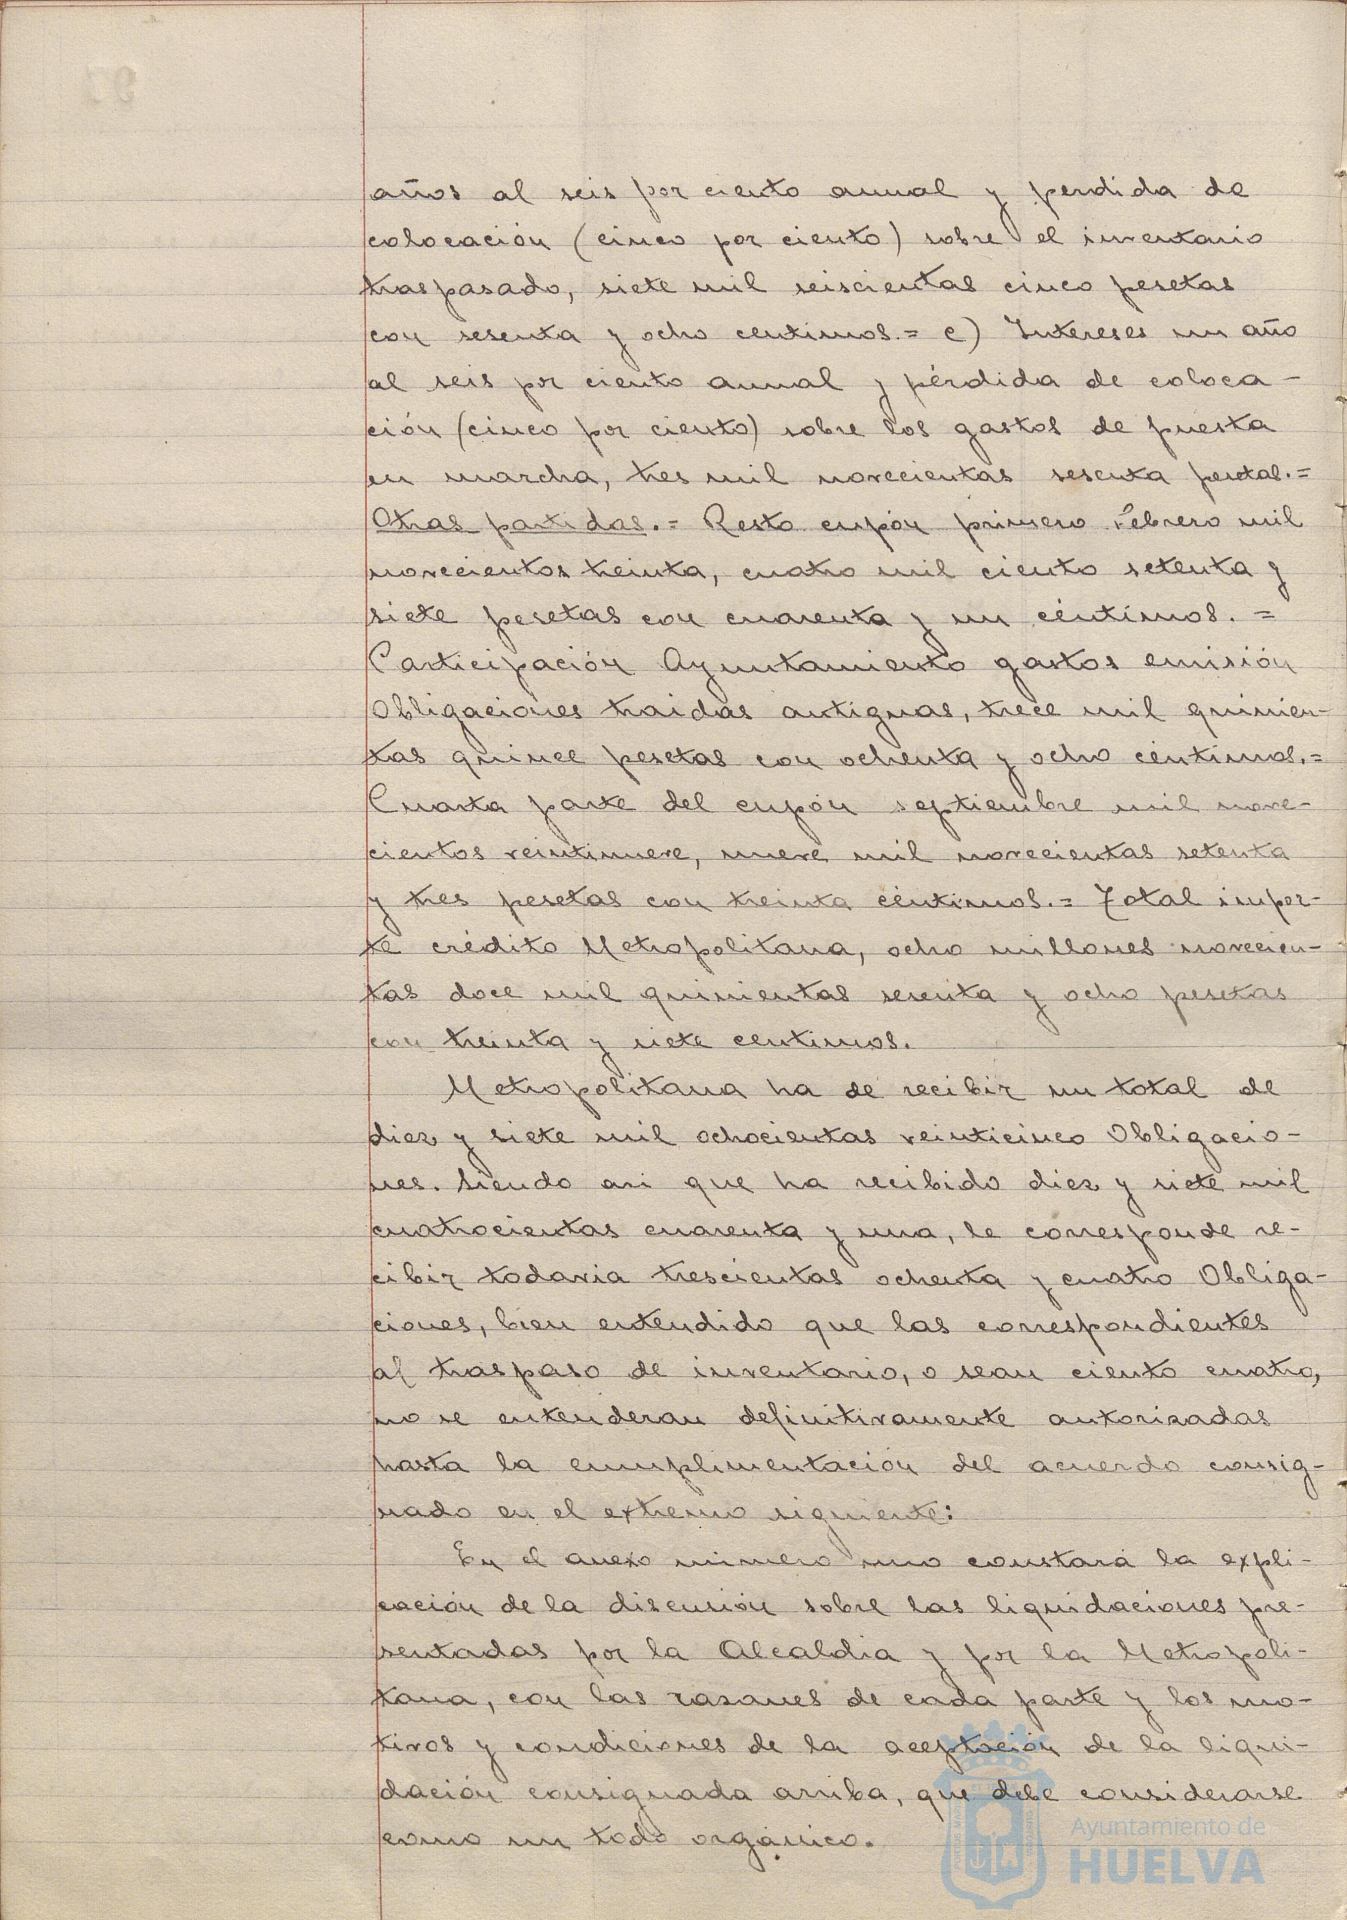 años al seis por ciento anual y perdida de
colocación (cinco por ciento) sobre el inventario
traspasado, siete mil seiscientas cinco pesetas
con sesenta y ocho centimos.= c) Intereses un año
al seis por ciento anual y pérdida de coloca-
ción (cinco por ciento) sobre los gastos de puesta
en marcha, tres mil novecientas sesenta pesetas.=
Otras partidas.= Resto cupón primero Febrero mil
novecientos treinta, cuatro mil ciento setenta y
siete pesetas con cuarenta y un céntimos. =
Participación Ayuntamiento gastos emisión
Obligaciones traidas antiguas, trece mil quinien-
tas quince pesetas con ochenta y ocho céntimos.=
Cuarta parte del cupón septiembre mil nove-
cientos veintinueve, nueve mil novecientas setenta
y tres pesetas con treinta céntimos.= Total impor-
te crédito Metropolitana, ocho millones novecien-
tas doce mil quinientas sesenta y ocho pesetas
con treinta y siete centimos.
Metropolitana ha de recibir un total de
diez y siete mil ochocientas veinticinco Obligacio-
nes. Siendo asi que ha recibido diez y siete mil
cuatrocientas cuarenta y una, le corresponde re-
cibir todavia trescientas ochenta y cuatro Obliga-
ciones, bien entendido que las correspondientes
al traspaso de inventario, o sean ciento cuatro,
no se entenderan definitivamente autorizadas
hasta la cumplimentación del acuerdo consig-
nado en el extremo siguiente:
En el anexo número uno constará la expli-
cación de la discusión sobre las liquidaciones pre-
sentadas por la Alcaldia y por la Metropoli-
tana, con las razones de cada parte y los mo-
tivos y condiciones de la aceptación de la liqui-
dación consignada arriba, que debe considerarse
como un todo orgánico.
Ayuntamiento de
HUELVA